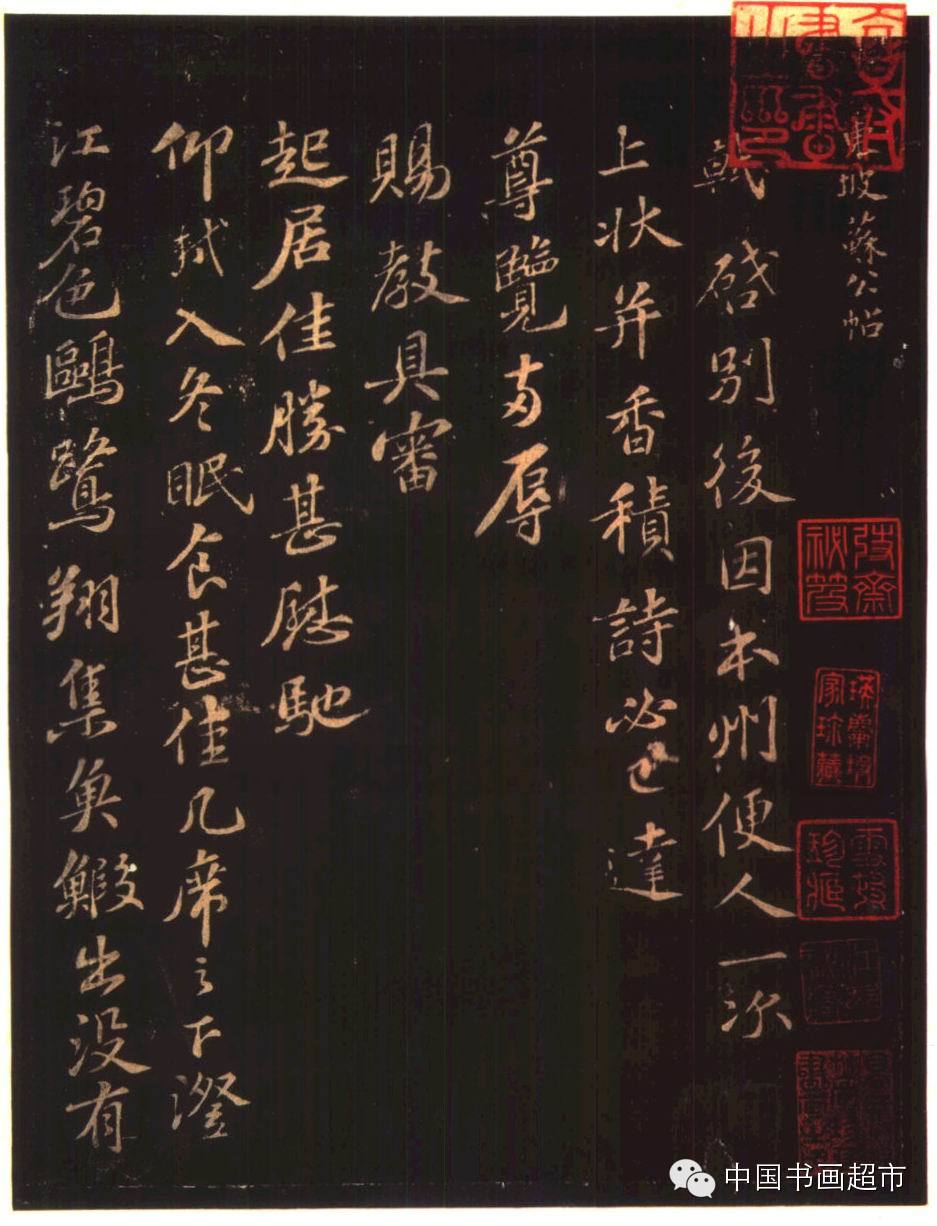 東坡蘇公帖
軾啓別後因本州便人一次
上狀并香積詩必已達
尊覽兩辱
賜教具審
起居佳勝甚慰馳
仰軾入冬眠食甚佳几席之下澄
江碧色鷗鷺翔集魚鰕出没有
中国书画超市